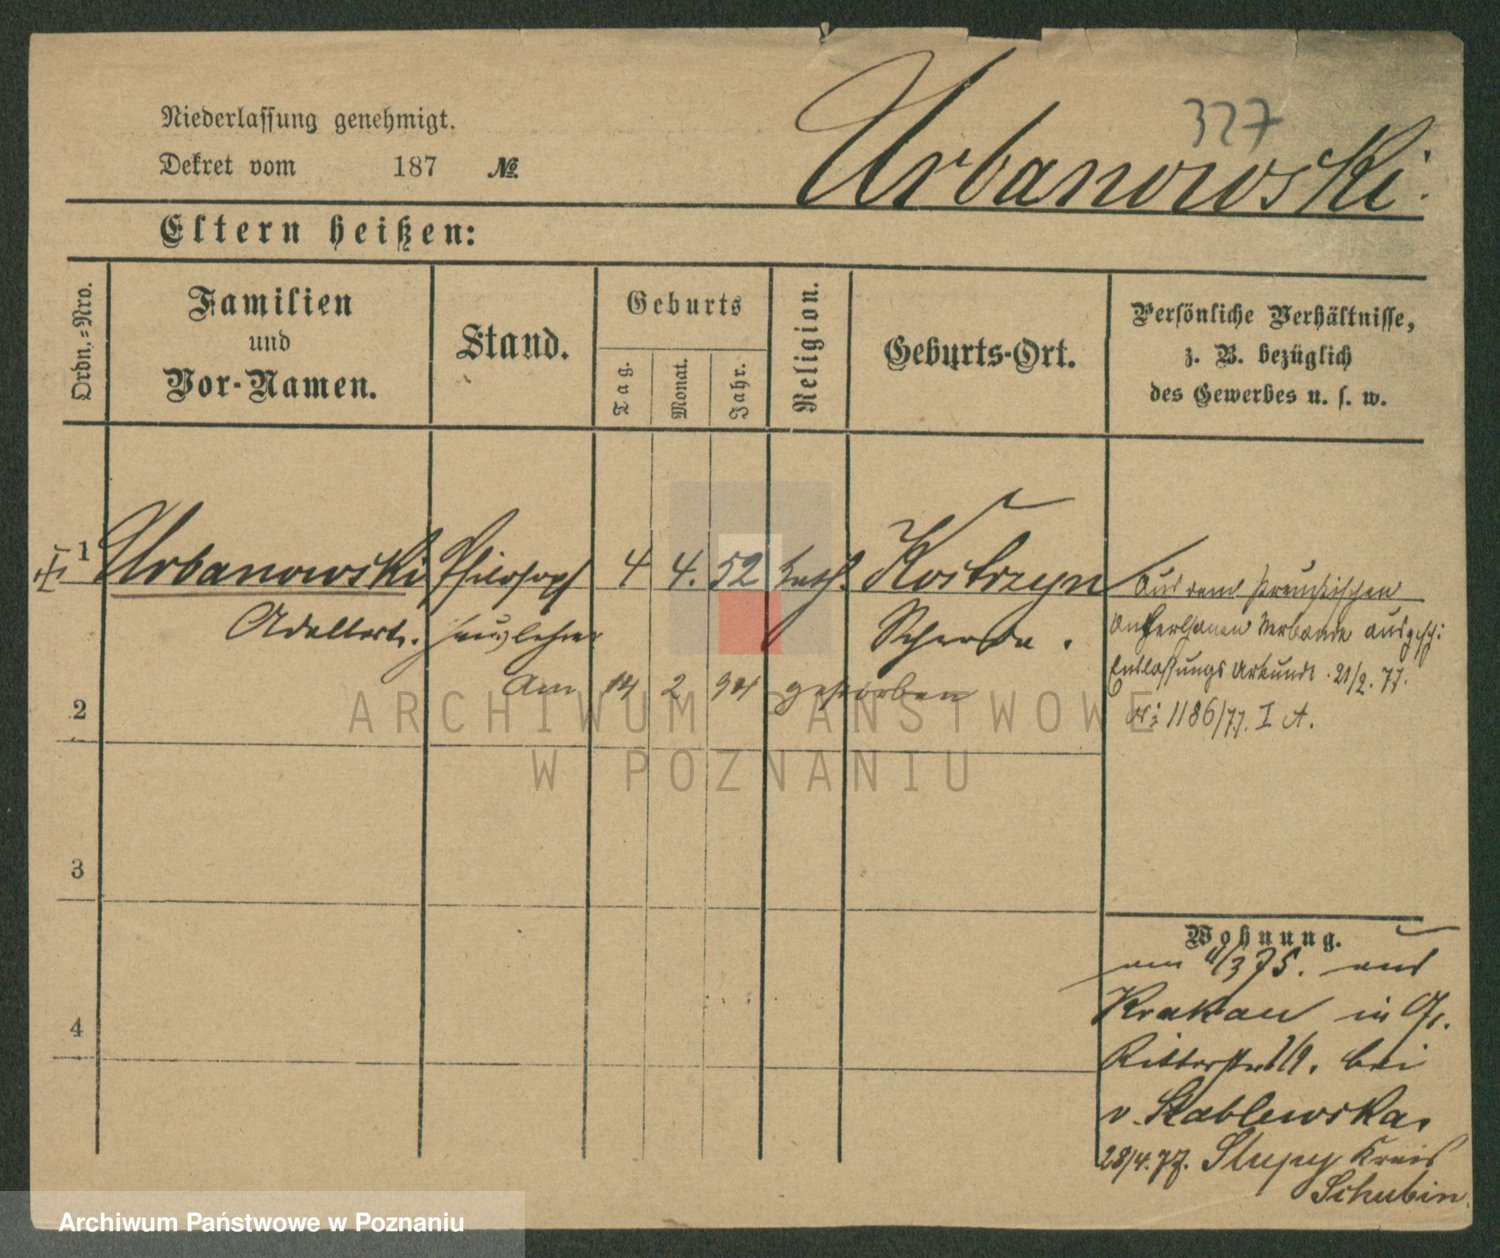 327
Urbanowski.
Niederlassung genehmigt.
Dekret vom 187 №
Eltern heißen:
Ordn.-Nro.
Familien
und
Vor-Namen.
Stand.
Geburts
Tag.
Monat.
Jahr.
Religion.
Geburts-Ort.
Persönliche Verhältnisse,
z. B. bezüglich
des Gewerbes u. s. w.
1 Urbanowski Philosoph 4 4. 52 kath. Kostrzyn
Adalbert. Hauslehrer Schroda.
Am 14 2 94 gestorben
Aus dem Preußischen
Unterthanen Verbande ausgesch:
Entlassungs Urkunde 21/2. 77.
1186/77. I A.
2
3
4
Wohnung.
am 11/3 75. aus
Krakau in Gr.
Ritterstr. bei
v. Stablewska.
28/4. 77. Slupy Kreis
Schubin.
ARCHIWUM PAŃSTWOWE
W POZNANIU
Archiwum Państwowe w Poznaniu